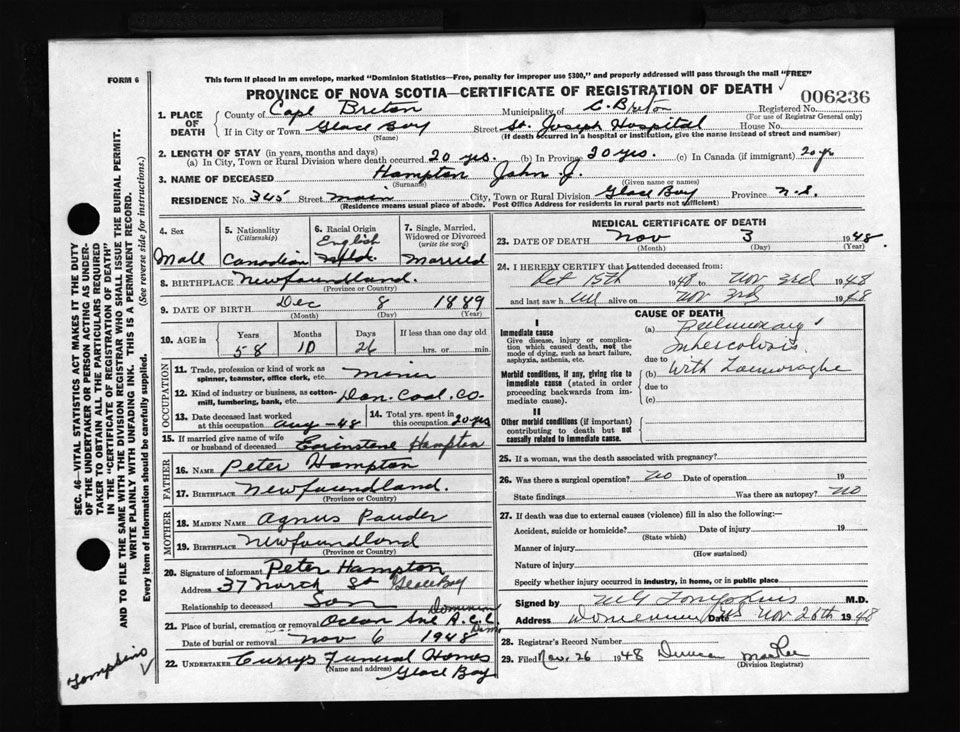 FORM 6
This form if placed in an envelope, marked "Dominion Statistics—Free, penalty for improper use $300," and properly addressed will pass through the mail "FREE"
PROVINCE OF NOVA SCOTIA—CERTIFICATE OF REGISTRATION OF DEATH
006236
1. PLACE OF DEATH County of Cape Breton Municipality of C. Breton Registered No.
(For use of Registrar General only)
If in City or Town Glace Bay Street St. Joseph Hospital House No.
(Name) (If death occurred in a hospital or institution, give the name instead of street and number)
2. LENGTH OF STAY (in years, months and days)
(a) In City, Town or Rural Division where death occurred 20 yrs. (b) In Province 20 yrs. (c) In Canada (if immigrant) 20 yr
3. NAME OF DECEASED Hampton John J.
(Surname) (Given name or names)
RESIDENCE No. 345 Street Main City, Town or Rural Division Glace Bay Province N.S.
(Residence means usual place of abode. Post Office Address for residents in rural parts not sufficient)
4. Sex Male
5. Nationality (Citizenship) Canadian
6. Racial Origin English Nfld.
7. Single, Married, Widowed or Divorced (write the word) Married
8. BIRTHPLACE Newfoundland.
(Province or Country)
9. DATE OF BIRTH Dec 8 1889
(Month) (Day) (Year)
10. AGE in Years Months Days If less than one day
58 10 26 hrs. or min.
OCCUPATION
11. Trade, profession or kind of work as spinner, teamster, office clerk, etc. Miner
12. Kind of industry or business, as cotton-mill, lumbering, bank, etc. Dom. Coal. Co.
13. Date deceased last worked at this occupation Aug - 48
14. Total yrs. spent in this occupation 20 yrs
15. If married give name of wife or husband of deceased Hampton
FATHER
16. NAME Peter Hampton
17. BIRTHPLACE Newfoundland.
(Province or Country)
MOTHER
18. MAIDEN NAME Agnus
19. BIRTHPLACE Newfoundland
(Province or Country)
20. Signature of informant Peter Hampton
Address 37 March St Glace Bay
Relationship to deceased Son
21. Place of burial, cremation or removal Ocean Ave A.C.C. Dominion
Date of burial or removal Nov 6 1948
22. UNDERTAKER Currys Funeral Homes
(Name and address) Glace Bay
MEDICAL CERTIFICATE OF DEATH
23. DATE OF DEATH Nov 3 1948.
(Month) (Day) (Year)
24. I HEREBY CERTIFY that I attended deceased from:
Oct 15th 1948 to Nov 3rd 1948
and last saw h alive on Nov 3rd 1948
CAUSE OF DEATH
I
Immediate cause
Give disease, injury or complication which caused death, not the mode of dying, such as heart failure, asphyxia, asthenia, etc.
(a) Pulmonary
Tuberculosis
due to
Morbid conditions, if any, giving rise to immediate cause (stated in order proceeding backwards from immediate cause).
(b) With Haemoraghe
due to
(c)
II
Other morbid conditions (if important) contributing to death but not causally related to immediate cause.
25. If a woman, was the death associated with pregnancy?
26. Was there a surgical operation? No Date of operation 19
State findings Was there an autopsy? No
27. If death was due to external causes (violence) fill in also the following:—
Accident, suicide or homicide? Date of injury 19
(State which)
Manner of injury
(How sustained)
Nature of injury
Specify whether injury occurred in industry, in home, or in public place
Signed by MG Tompkins M.D.
Address Dominion NS Date Nov 26th 1948
28. Registrar's Record Number
29. Filed Nov. 26 1948 Duncan MacRae
(Division Registrar)
SEC. 46—VITAL STATISTICS ACT MAKES IT THE DUTY OF THE UNDERTAKER OR PERSON ACTING AS UNDERTAKER TO OBTAIN ALL THE PARTICULARS REQUIRED IN THE "CERTIFICATE OF REGISTRATION OF DEATH" AND TO FILE THE SAME WITH THE DIVISION REGISTRAR WHO SHALL ISSUE THE BURIAL PERMIT.
WRITE PLAINLY WITH UNFADING INK. THIS IS A PERMANENT RECORD.
Every item of Information should be carefully supplied. (See reverse side for instructions.)
Tompkins